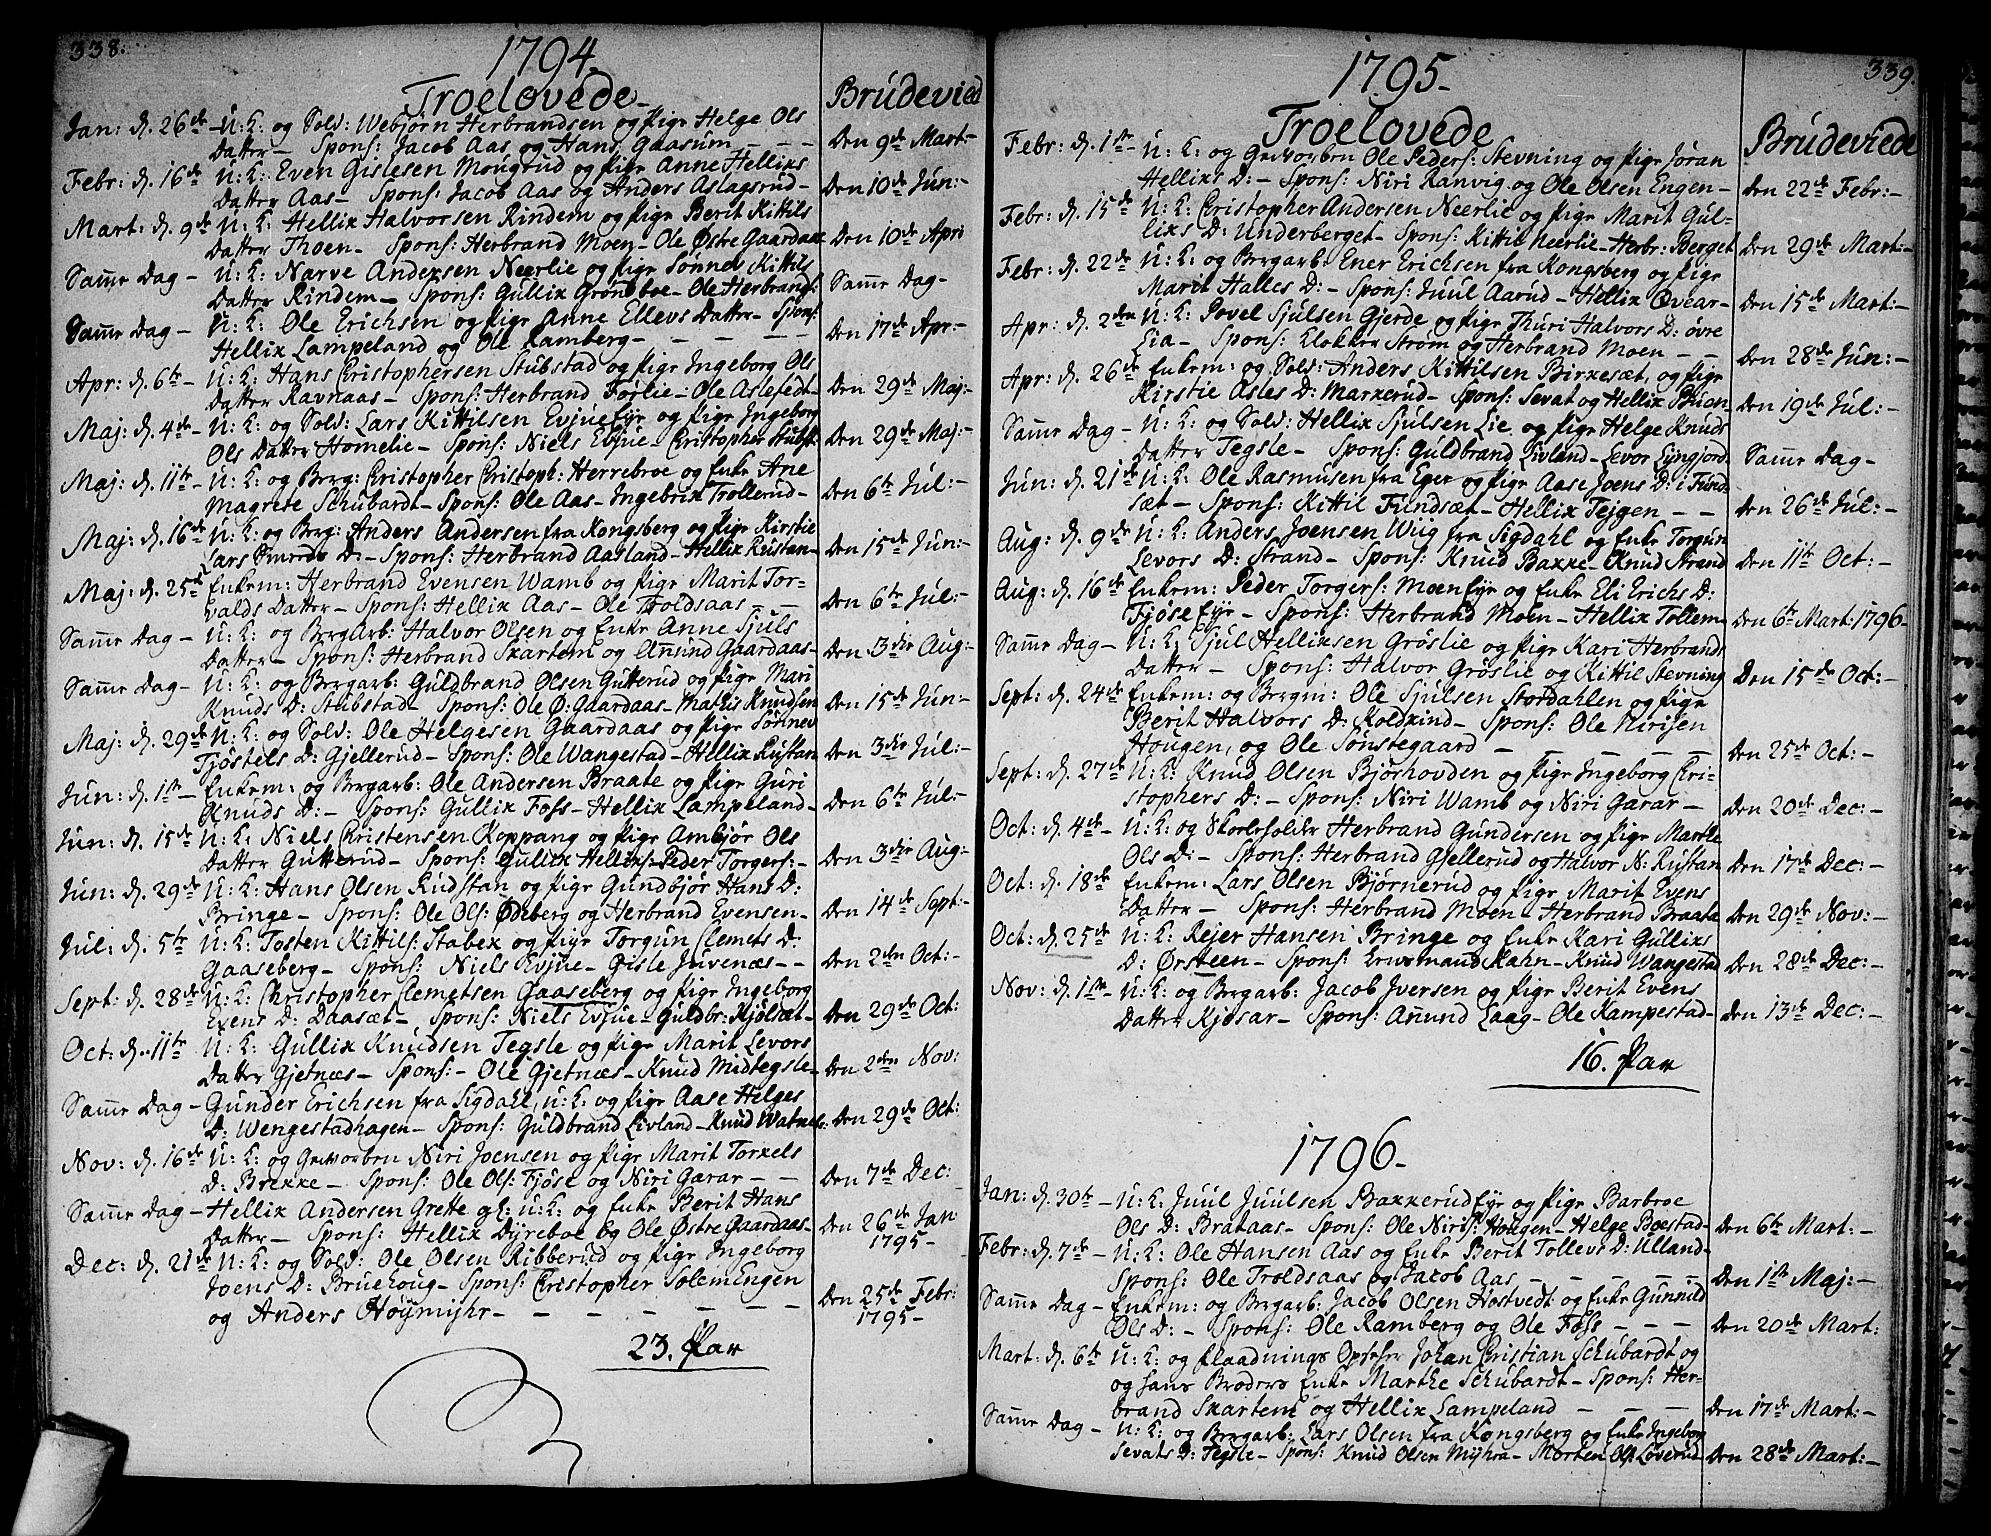 338.
1794.
Troelovede - Brudeviede
Jan: d. 26de U: K: og Sold: Webjørn Herbrandsen og Pige Helge Ols
Datter - Spons: Jacob Aas og Hans Gaasum - - - Den 9de Mart:-
Febr: d. 16de U: K: Even Gislesen Mongrud og Pige Anne Hellixs
Datter Aas - Spons: Jacob Aas og Anders Aslagsrud - Den 10de Jun:-
Mart: d. 9de U: K: Hellix Halvorsen Rindem og Pige Berit Kittils
Datter Thoen - Spons: Herbrand Moen - Ole Østre Gaardaas Den 10de Apri
Samme Dag - U: K: Narve Andersen Neerlie og Pige Sønnev Kittils
Datter Rindem - Spons: Gullix Grønsboe - Ole Herbrands: Samme Dag -
Samme Dag - U: K: Ole Erichsen og Pige Anne Ellevs Datter - Spons:
Hellix Lampeland og Ole Ramberg - - - - - Den 17de Apr:-
Apr: d. 6te - U: K: Hans Christophersen Stubstad og Pige Ingeborg Ols
Datter Ravnaas - Spons: Herbrand Førlie - Ole Aslefedt - Den 29de Maj:-
Maj: d. 4de - U: K: og Sold: Lars Kittilsen Evjue Eje og Pige Ingeborg
Ols Datter Homelie - Spons: Niels Evjue - Christopher Stubst: Den 29de Maj:-
Maj: d. 11te - U: K: og Berg: Christopher Christoph: Herreboe og Enke Ane
Magrete Schubardt - Spons: Ole Aas - Ingebrix Trollerud - Den 6te Jul:-
Maj: d. 16de U: K: og Berg: Anders Andersen fra Kongsberg og Pige Kirstie
Lars D: - Spons: Herbrand Aasland - Hellix Rustan - Den 15de Jun:-
Maj: d. 25de Enkem: Herbrand Evensen Wamb og Pige Marit Tor-
valds Datter - Spons: Hellix Aas - Ole Troldsaas - - Den 6te Jul:-
Samme Dag - U: K: og BergArb: Halvor Olsen og Enke Anne Sjuls
Datter - Spons: Herbrand Skartem og Anund Gaardaas - Den 3die Aug:-
Samme Dag - U: K: og Bergarb: Guldbrand Olsen Gutterud og Pige Mari
Knuds D: Stubstad - Spons: Ole Ø: Gaardaas - Mathis Knudsen Den 15de Jun:-
Maj: d. 29de U: K: og Sold: Ole Helgesen Gaardaas og Pige Sønnev
Tjøstels D: Gjellerud - Spons: Ole Wangestad - Hellix Rustan Den 3die Jul:-
Jun: d. 1ste - Enkem: og Bergarb: Ole Andersen Braate og Pige Guri
Knuds D: - Spons: Gullix Foss - Hellix Lampeland - Den 6te Jul:-
Jun: d. 15de U: K: Niels Christensen Koppang og Pige Ambjør Ols
Datter Gutterud - Spons: Gullix Hellixs: Peder Torgers:- Den 3die Aug:-
Jun: d. 29de U: K: Hans Olsen Rudstan og Pige Gundbjør Hans D:
Bringe - Spons: Ole Ols: Ødeberg og Herbrand Evensen - Den 14de Sept:-
Jul: d. 5te U: K: Tosten Kittils: Stabex og Pige Torgun Clemets D:
Gaaseberg - Spons: Niels Evjue - Gisle Juvenæs - - Den 2den Oct:-
Sept: d. 28de U: K: Christopher Clemetsen Gaaseberg og Pige Ingeborg
Evens D: Daasæt - Spons: Niels Evjue - Guldbr: Kjølsæt - Den 29de Oct:
Oct: d. 11te U: K: Gullix Knudsen Tegsle og Pige Marit Levors
Datter Gjetnæs - Spons:- Ole Gjetnæs - Knud Midtegsle - Den 2den Nov:
Samme Dag - Gunder Erichsen fra Sigdahl, U: K: og Pige Aase Helges
D: Wengestadhagen - Spons: Guldbrand Livland - Knud Watnes:- Den 29de Oct:
Nov: d. 16de U: K: og Gevorben Niri Joensen og Pige Marit Torkels
D: Brekke - Spons: Ole Ols: Tjøse og Niri Garar - - Den 7de Dec:
Samme Dag - Hellix Andersen Grette gl: U: K: og Enke Berit Hans
Datter - Spons: Hellix Dyreboe og Ole Østre Gaardaas - Den 26de Jan 1795 -
Dec: d. 21de U: K: og Sold: Ole Olsen Ribberud og Pige Ingeborg
Joens D: Bruehoug - Spons: Christopher Solem Engen
og Anders Høymyhr - - - - - - - Den 25de Febr: 1795 -
23. Par
339.
1795 -
Troelovede Brudeviede
Febr: d. 1ste - U: K: og Gevorben Ole Peders: Stevning og Pige Jøran
Hellixs D: - Spons: Niri Ranvig og Ole Olsen Engen - Den 22de Febr:-
Febr: d. 15de U: K: Christopher Andersen Neerlie og Pige Marit Gul-
lixs D: Underberget - Spons: Kittil Neerlie - Herbr: Berget Den 29de Mart:-
Febr: d. 22de U: K: og Bergarb: Ener Erichsen fra Kongsberg og Pige
Marit Halles D: - Spons: Juul Aarud - Hellix Øvear - Den 15de Mart:-
Apr: d. 2den U: K: Povel Sjulsen Gjerde og Pige Thuri Halvors D: øvre
Lia - Spons: Klokker Strøm og Herbrand Moen - - Den 28de Jun:-
Apr: d. 26de Enkem: og Sold: Anders Kittilsen Birkesæt, og Pige
Kirstie Asles D: Markerud - Spons: Sevat og Hellix Buan - Den 19de Jul:-
Samme Dag - U: K: og Sold: Hellix Sjulsen Lie og Pige Helge Knuds
Datter Tegsle - Spons: Guldbrand Livland - Levor Lyngjord. Samme Dag -
Jun: d. 21de U: K: Ole Rasmusen fra Eger og Pige Aase Joens D: i Fund-
sæt - Spons: Kittil Fundsæt - Hellix Tejgen - - Den 26de Jul:-
Aug: d. 9de U: K: Anders Joensen Wiig fra Sigdahl og Enke Torgun
Levors D: Strand - Spons: Knud Bakke - Knud Strand Den 11te Oct:-
Aug: d. 16de Enkem: Peder Torgers: Moen Eje og Enke Eli Erichs D:
Tjøse Eje - Spons: Herbrand Moen - Hellix Tollem - Den 6te Mart: 1796 -
Samme Dag - U: K: Sjul Hellixsen Grøslie og Pige Kari Herbrands
Datter - Spons: Halvor Grøslie og Kittil Stevning Den 15de Oct:-
Sept: d. 24de Enkem: og Bergm: Ole Sjulsen Stordahlen og Pige
Berit Halvors D: Koldkind - Spons: Ole Nirisen
Hougen, og Ole Sønstegaard - - - - Den 25de Oct:-
Sept: d. 27de U: K: Knud Olsen Bjørhovden og Pige Ingeborg Chri-
stophers D: - Spons: Niri Wamb og Niri Garar - Den 20de Dec:-
Oct: d. 4de - U: K: og Skoleholder Herbrand Gundersen og Pige Marthe
Ols D: - Spons: Herbrand Gjellerud og Halvor N: Rustan Den 17de Dec:-
Oct: d. 18de Enkem: Lars Olsen Bjørnerud og Pige Marit Evens
Datter - Spons: Herbrand Moen - Herbrand Braata Den 29de Nov:-
Oct: d. 25de U: K: Rejer Hansen Bringe og Enke Kari Gullixs
D: Ørsteen - Spons: Kahn - Knud Wangestad Den 28de Dec:-
Nov: d. 1ste - U: K: og Bergarb: Jacob Iversen og Pige Berit Evens
Datter Kjøsar - Spons: Anund Laag - Ole Kampestad - Den 13de Dec:-
16. Par
1796 -
Jan: d. 30te - U: K: Juul Juulsen Bakkerud Eje og Pige Barbroe
Ols D: Brataas - Spons: Ole Niris: Hougen - Helge Boestad - Den 6te Mart:-
Febr: d. 7de - U: K: Ole Hansen Aas og Enke Berit Tollevs D: Ulland -
Spons: Ole Troldsaas og Jacob Aas - - - - Den 1ste Maj:-
Samme Dag - Enkem: og Bergarb: Jacob Olsen Hostvedt og Enke Gunnild
Ols D: - Spons: Ole Ramberg og Ole Foss - - - Den 20de Mart:
Mart: d. 6te U: K: og Flaadnings Opseher Johan Christian Schubardt og
og hans Broders Enke Marthe Schubardt - Spons: Her-
brand Skartem og Hellix Lampeland - - - Den 17de Mart:-
Samme Dag - U: K: og Bergarb: Lars Olsen fra Kongsberg og Enke Ingeborg
Sevats D: Tegsle - Spons: Knud Olsen Myhra - Morten Ols: Loverud - Den 28de Mart:-